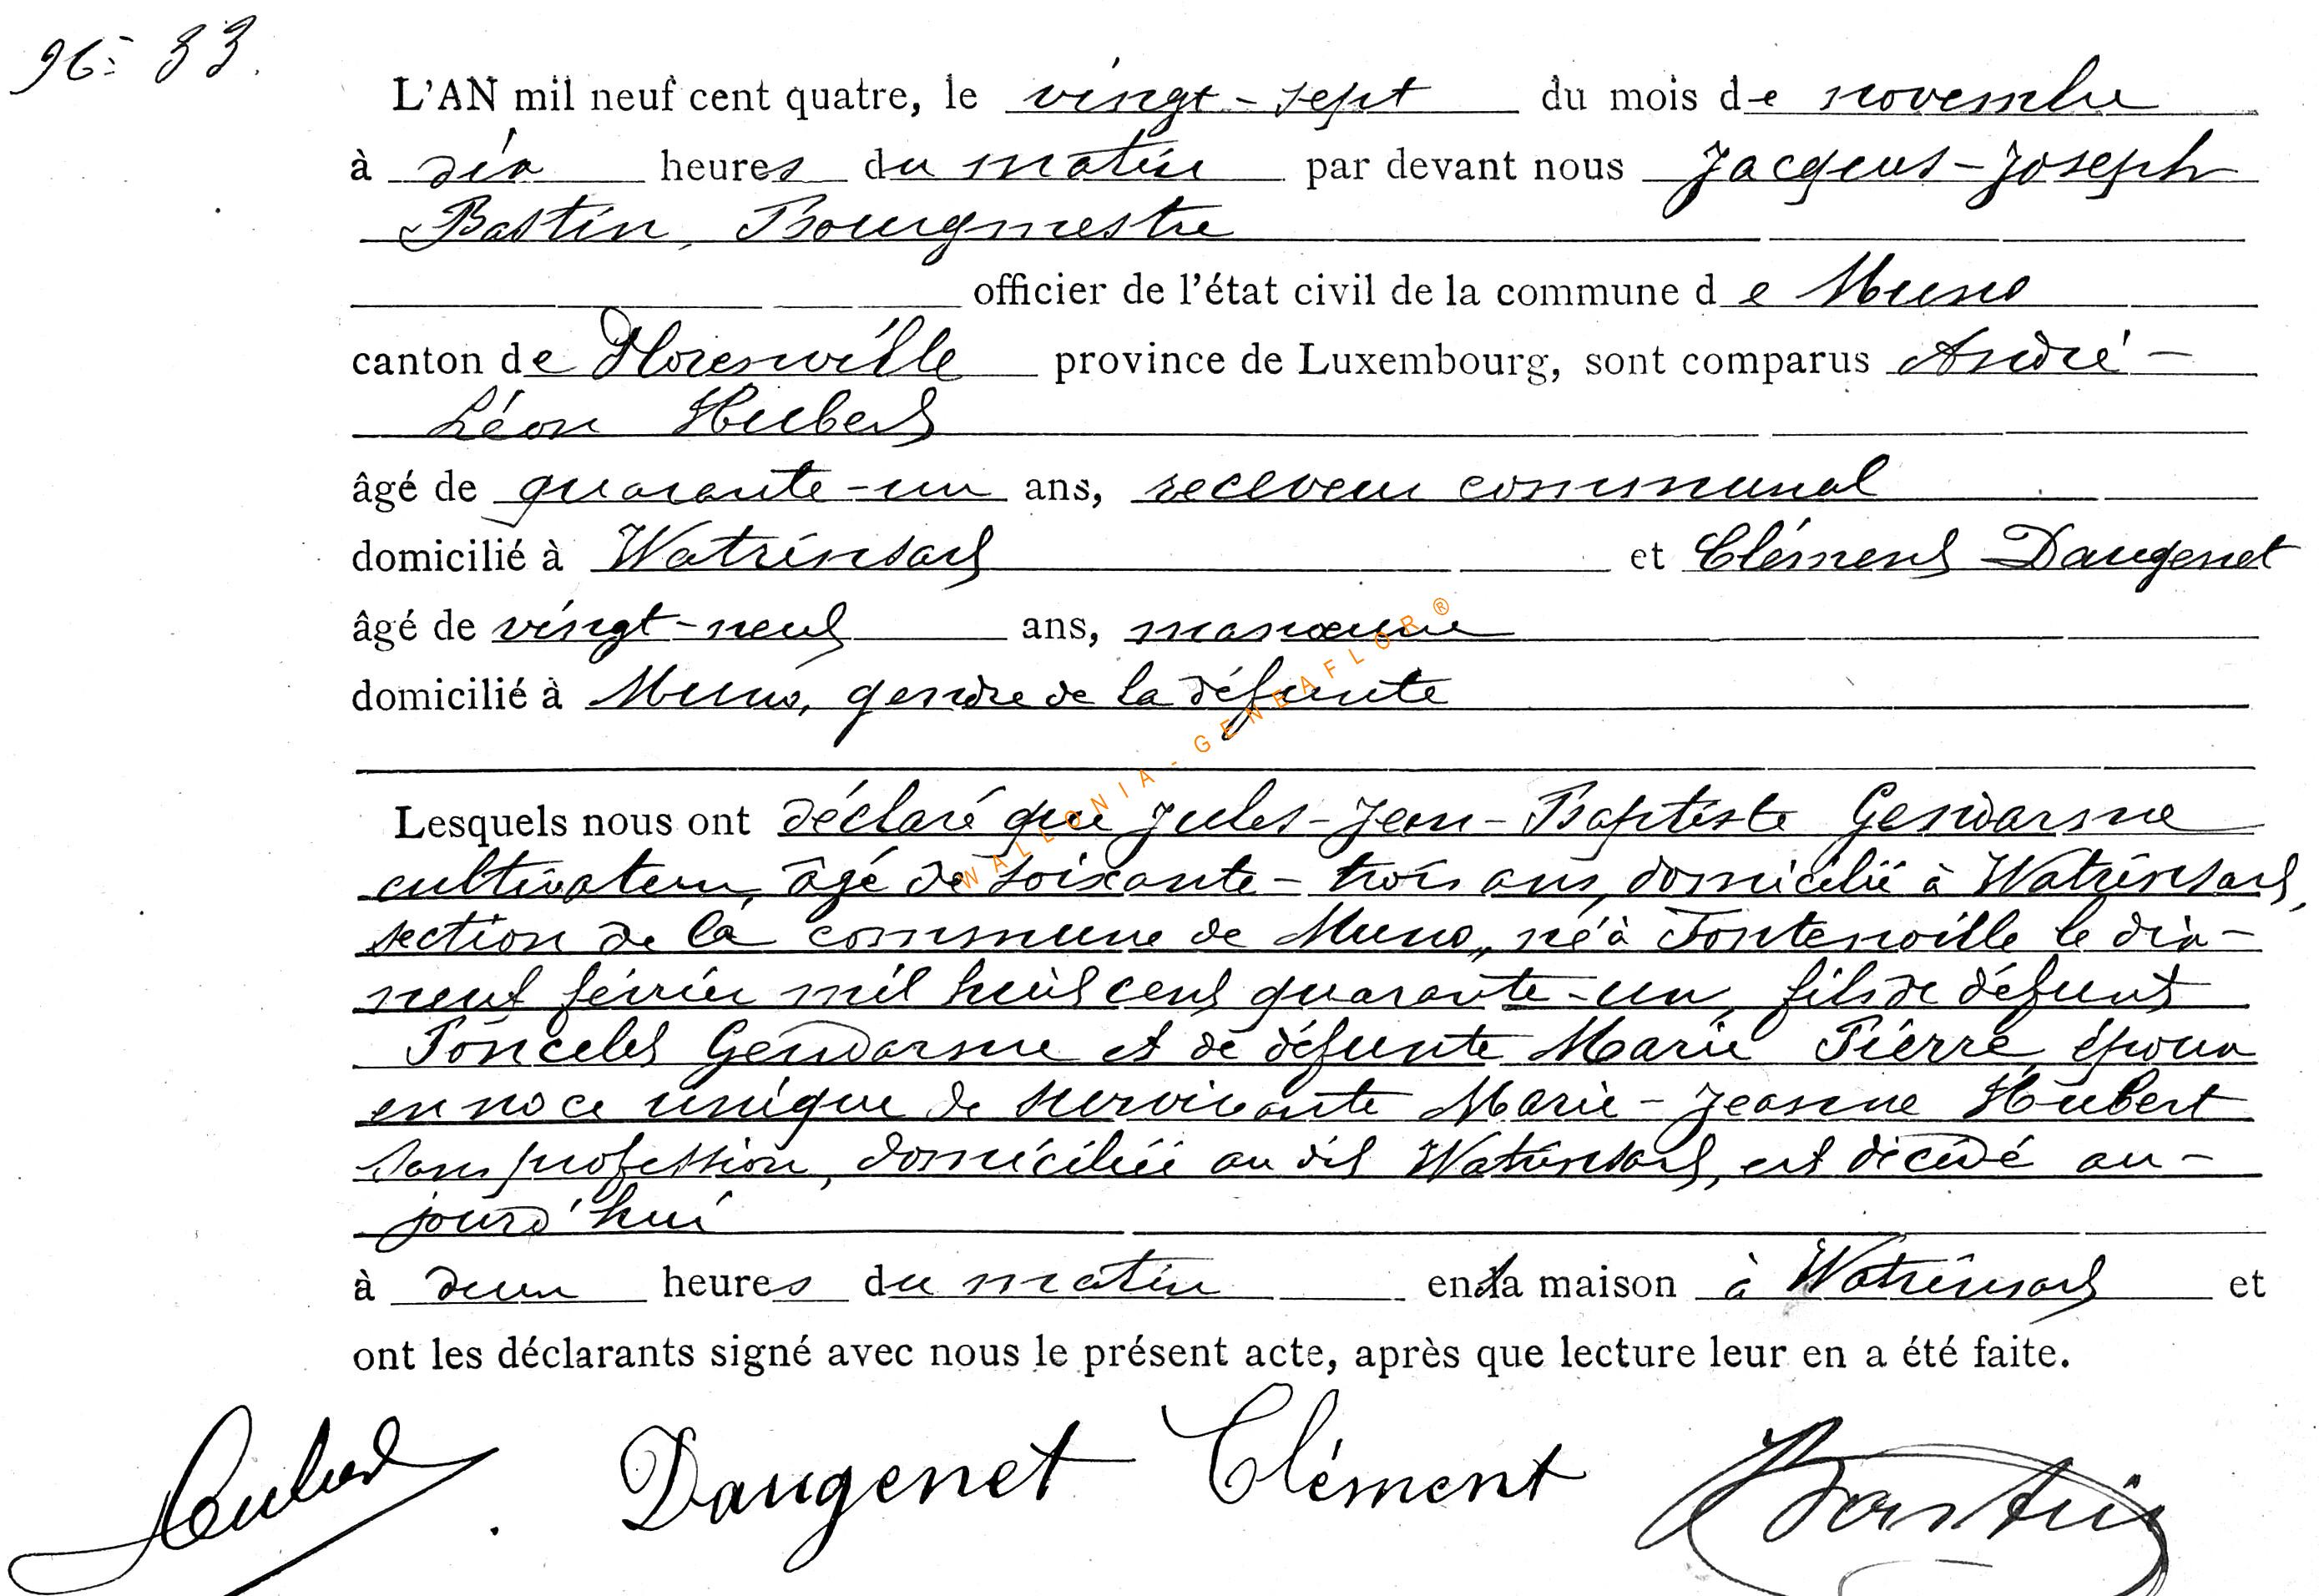 N° 33.
L'AN mil neuf cent quatre, le vingt-sept du mois de novembre
à dix heures du matin par devant nous Jacques-Joseph
Bastin, Bourgmestre
officier de l'état civil de la commune de Muno
canton de Florenville province de Luxembourg, sont comparus André-
Léon Hubert
âgé de quarante-un ans, receveur communal
domicilié à Watrinsart et Clément Daugenet
âgé de vingt-neuf ans, manœuvre
domicilié à Muno, gendre de la défunte
Lesquels nous ont déclaré que Jules-Jean-Baptiste Gendarme
cultivateur, âgé de soixante-trois ans, domicilié à Watrinsart,
section de la commune de Muno, né à Fontenoille le dix-
neuf février mil huit cent quarante-un, fils de défunt
Poncelet Gendarme et de défunte Marie Pierre, époux
en noce unique de survivante Marie-Jeanne Hubert
sans profession, domiciliée au dit Watrinsart, est décédé au-
jourd'hui
à deux heures du matin en sa maison à Watrinsart et
ont les déclarants signé avec nous le présent acte, après que lecture leur en a été faite.
Hubert Daugenet Clément Bastin
WALLONIA-GENEAFLOR®